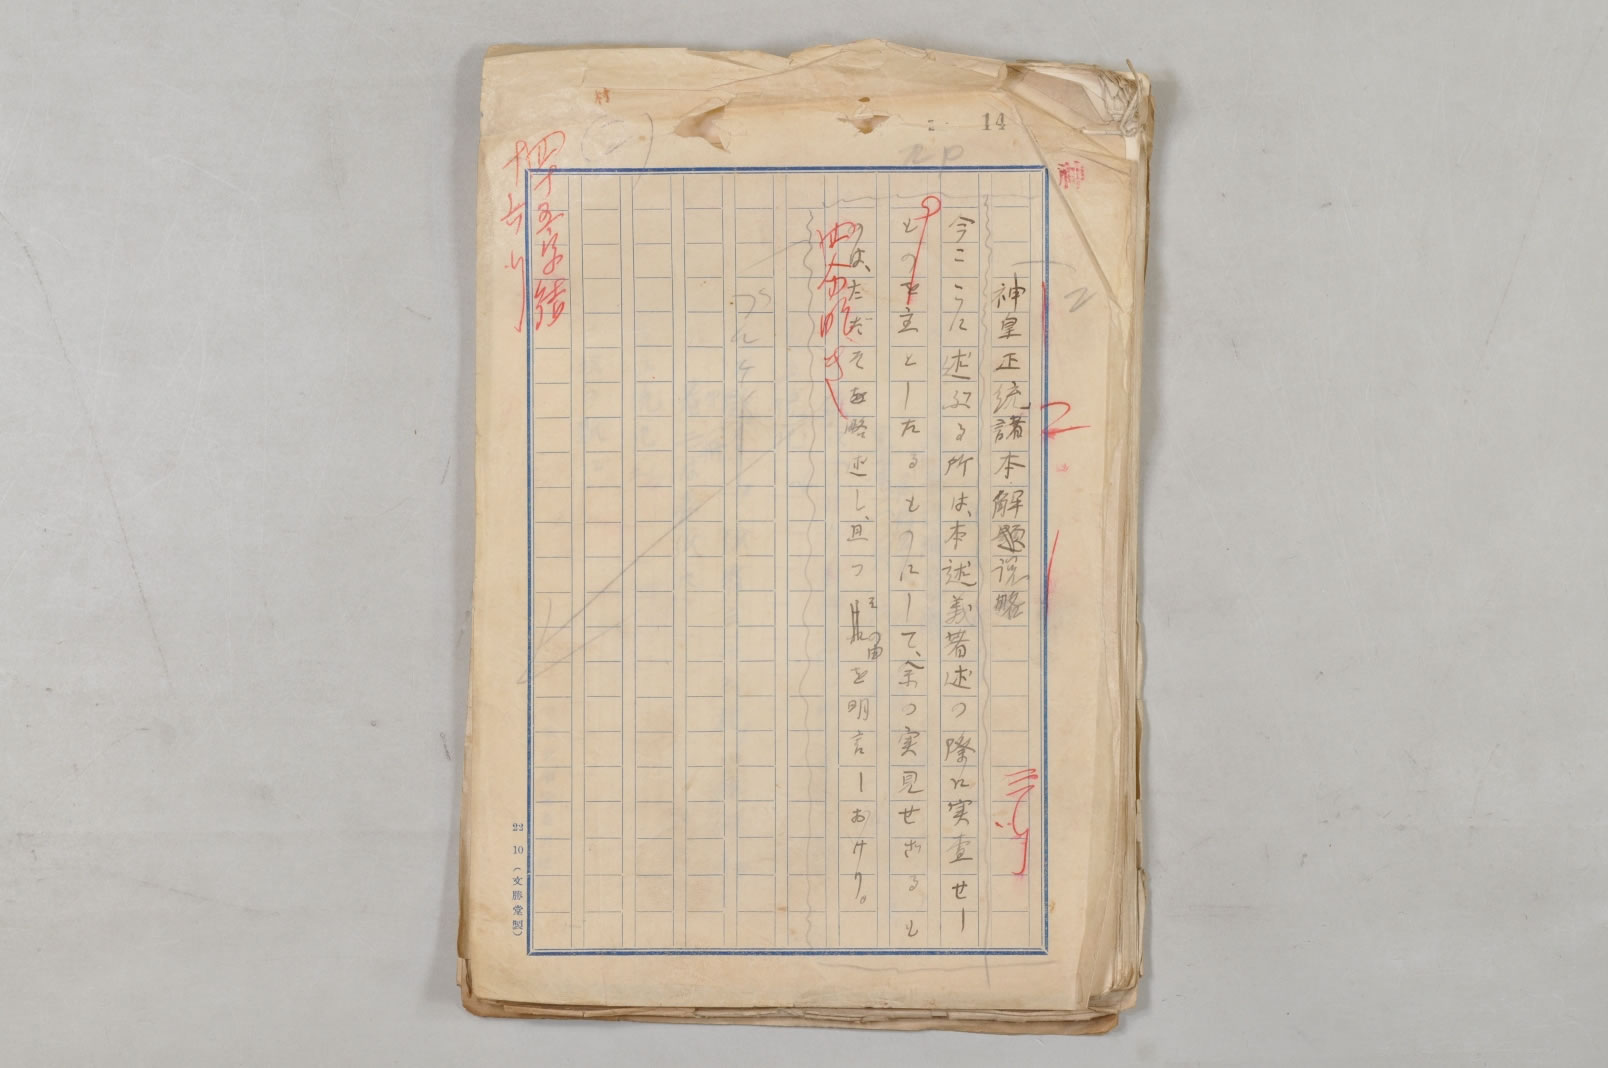 14
神皇正統諸本解題説略
今ここに述ぶる所は、本述義著述の際に実査せし
ものを主としたるものにして、余の実見せざるも
のは、ただそを略述し、且つその由を明言しおけり。
四十五字詰
十六行
22 10 (文勝堂製)